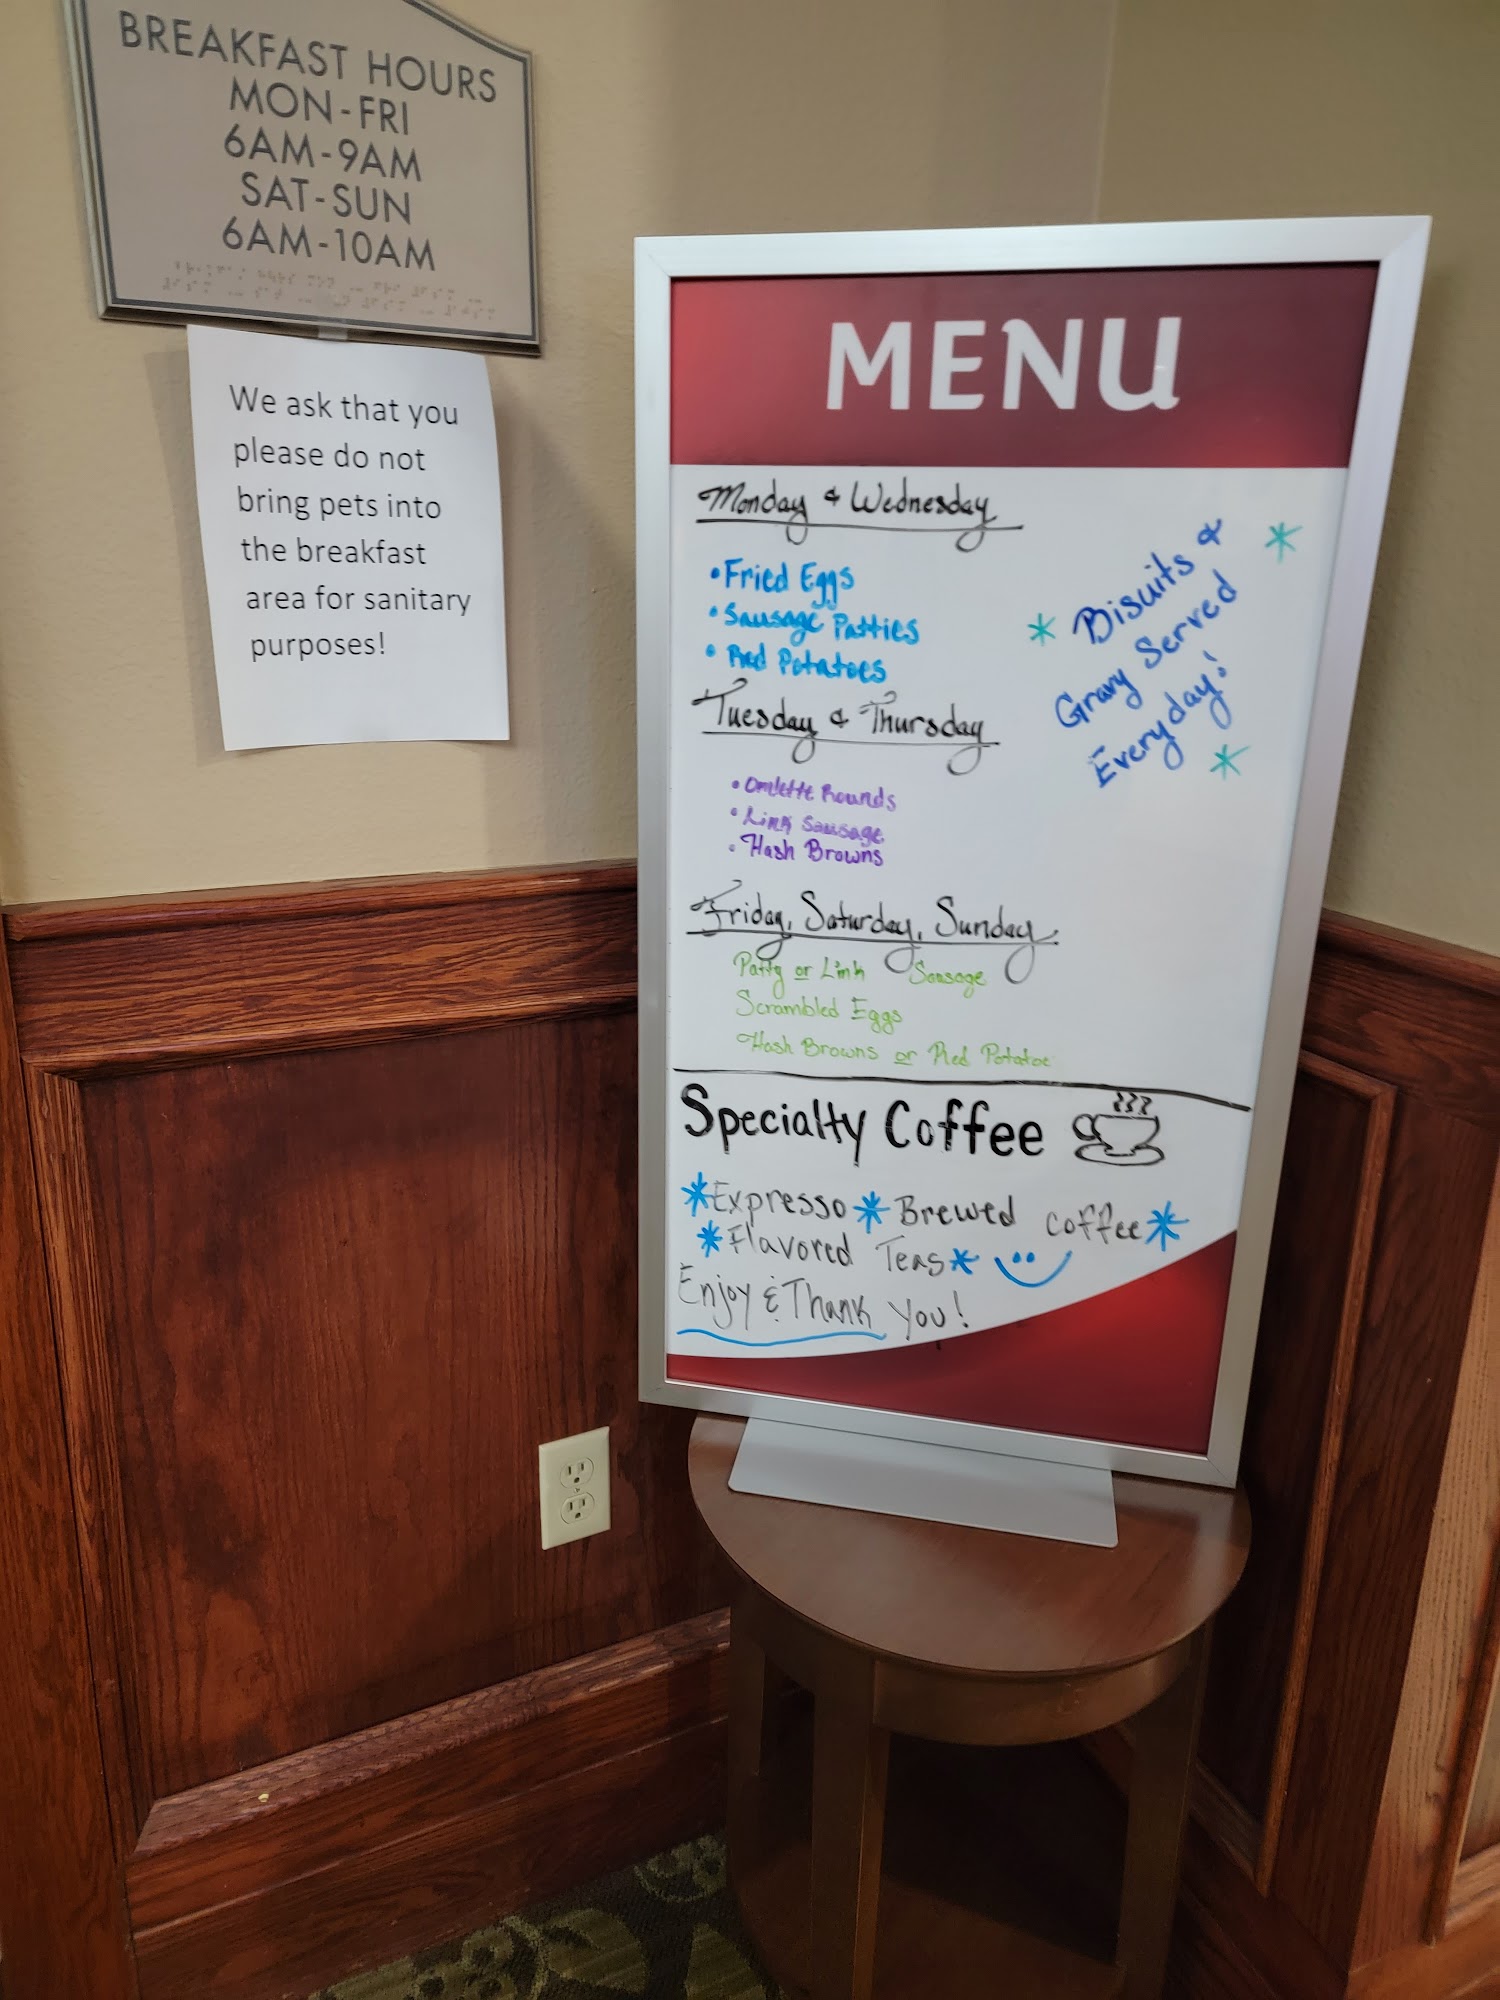 BREAKFAST HOURS
MON-FRI
6AM-9AM
SAT-SUN
6AM-10AM
We ask that you
please do not
bring pets into
the breakfast
area for sanitary
purposes!
MENU
Monday & Wednesday
• Fried Eggs
• Sausage Patties
• Red Potatoes
* Biscuits & *
Gravy Served
Everyday! *
Tuesday & Thursday
• Omlette Rounds
• Link Sausage
• Hash Browns
Friday, Saturday, Sunday
Patty or Link Sausage
Scrambled Eggs
Hash Browns or Red Potatoe
Specialty Coffee
*Expresso* Brewed Coffee*
*Flavored Teas*
Enjoy & Thank You!